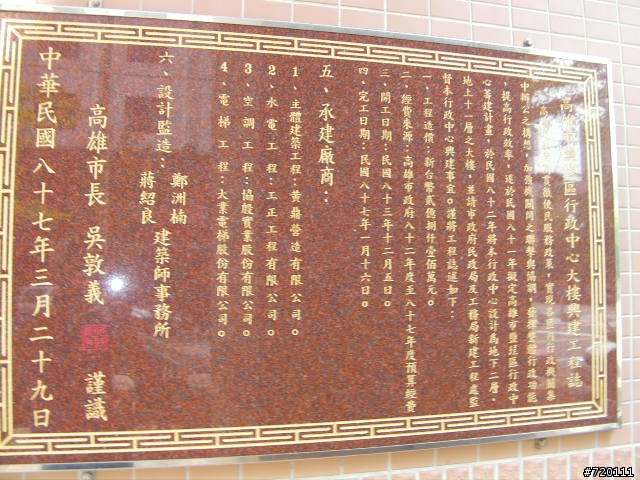 高雄市鹽埕區行政中心大樓興建工程誌
實徹便民服務政策，實現各區行政機關集
中辦公之構想，加強機關間之聯繫與協調，發揮整體行政功能
提高行政效率，遂於民國八十一年擬定高雄市鹽埕區行政中
心籌建計畫，於民國八十二年將本行政中心設計為地下二層、
地上十一層之大樓，並請市政府民政局及工務局新建工程處監
督本行政中心興建事宜。謹將工程誌述如下：
一、工程造價：新台幣貳億捌仟壹佰萬元。
二、經費來源：高雄市政府八十二年度至八十七年度預算經費
三、開工日期：民國八十三年十二月五日。
四、完工日期：民國八十七年一月十六日。
五、承建廠商：
1、主體建築工程：黃鼎營造有限公司。
2、水電工程：工正工程有限公司。
3、空調工程：協般實業股份有限公司。
4、電梯工程：大業電梯股份有限公司。
六、設計監造：鄭洲楠
蔣紹良
建築師事務所
高雄市長 吳敦義 謹識
中華民國八十七年三月二十九日
#720111